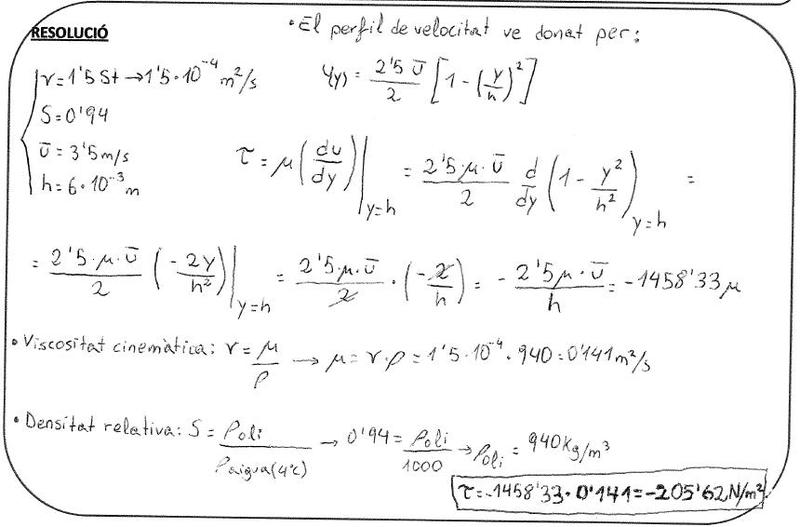 RESOLUCIÓ
• El perfil de velocitat ve donat per:
ν=1'5 St → 1'5·10⁻⁴ m²/s
S=0'94
ū = 3'5 m/s
h = 6·10⁻³ m
u(y) = 2'5 ū / 2 [1 - (y/h)²]
τ = μ (du/dy)|y=h = 2'5·μ·ū / 2 d/dy (1 - y²/h²) y=h =
= 2'5·μ·ū / 2 (-2y/h²)|y=h = 2'5·μ·ū / 2 · (-2/h) = - 2'5μ·ū / h = -1458'33 μ
• Viscositat cinemàtica: ν = μ/ρ → μ = ν·ρ = 1'5·10⁻⁴·940 = 0'141 m²/s
• Densitat relativa: S = ρoli / ρaigua(4ºC) → 0'94 = ρoli / 1000 → ρoli = 940 Kg/m³
τ = -1458'33 · 0'141 = -205'62 N/m²